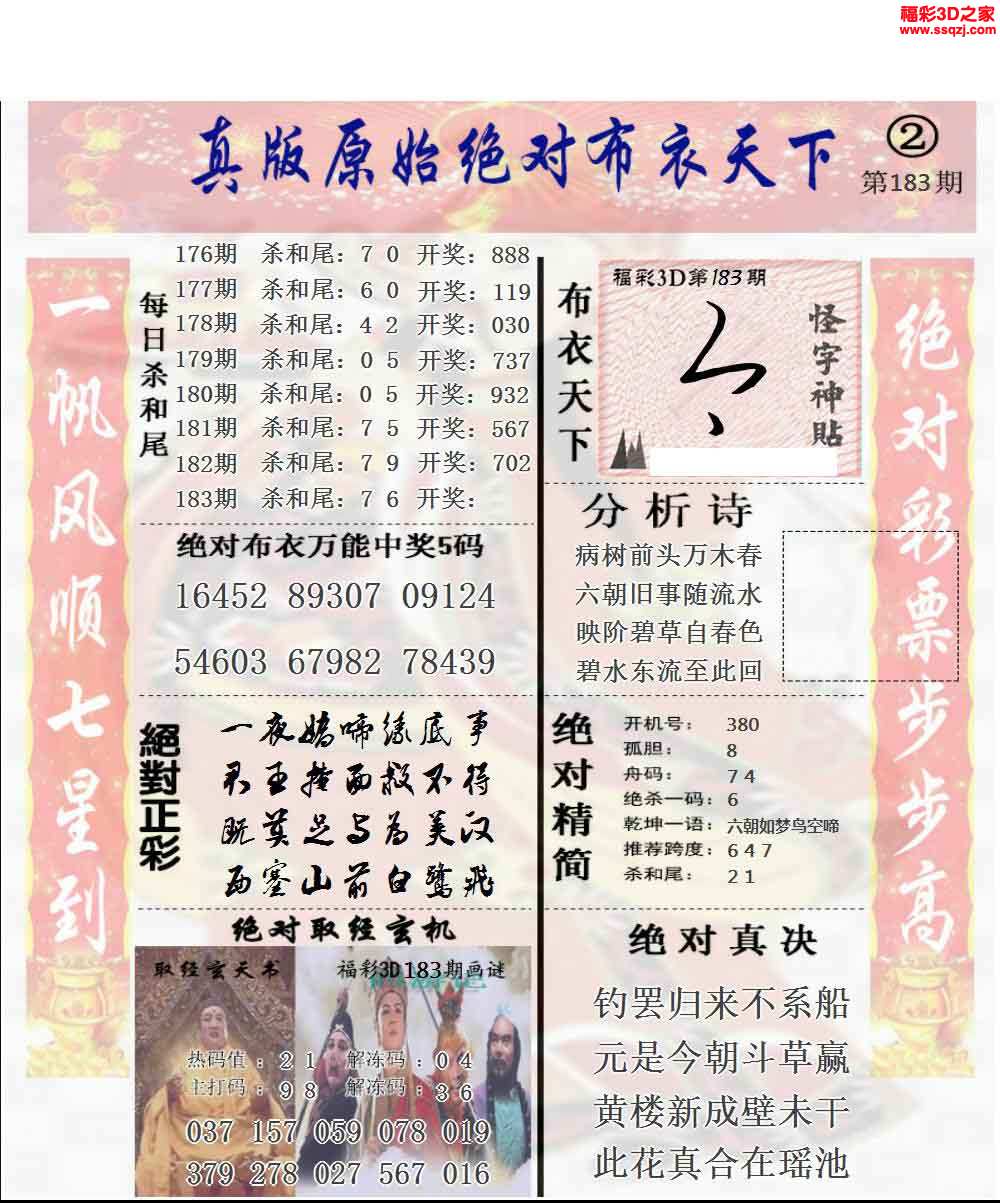 福彩3D之家
www.ssqzj.com
真版原始绝对布衣天下
②
第183期
一帆风顺七星到
每日杀和尾
176期 杀和尾：7 0 开奖：888
177期 杀和尾：6 0 开奖：119
178期 杀和尾：4 2 开奖：030
179期 杀和尾：0 5 开奖：737
180期 杀和尾：0 5 开奖：932
181期 杀和尾：7 5 开奖：567
182期 杀和尾：7 9 开奖：702
183期 杀和尾：7 6 开奖：
绝对布衣万能中奖5码
16452 89307 09124
54603 67982 78439
絕對正彩
一夜娇啼缘底事
君王掩面救不得
既莫足与为美汉
西塞山前白鹭飞
绝对取经玄机
取经玄天书
福彩3D183期画谜
热码值：2 1 解冻码：0 4
主打码：9 8 解冻码：3 6
037 157 059 078 019
379 278 027 567 016
布衣天下
福彩3D第183期
怪字神貼
分析诗
病树前头万木春
六朝旧事随流水
映阶碧草自春色
碧水东流至此回
绝对精简
开机号：380
孤胆：8
舟码：7 4
绝杀一码：6
乾坤一语：六朝如梦鸟空啼
推荐跨度：6 4 7
杀和尾：2 1
绝对真决
钓罢归来不系船
元是今朝斗草赢
黄楼新成壁未干
此花真合在瑶池
绝对彩票步步高